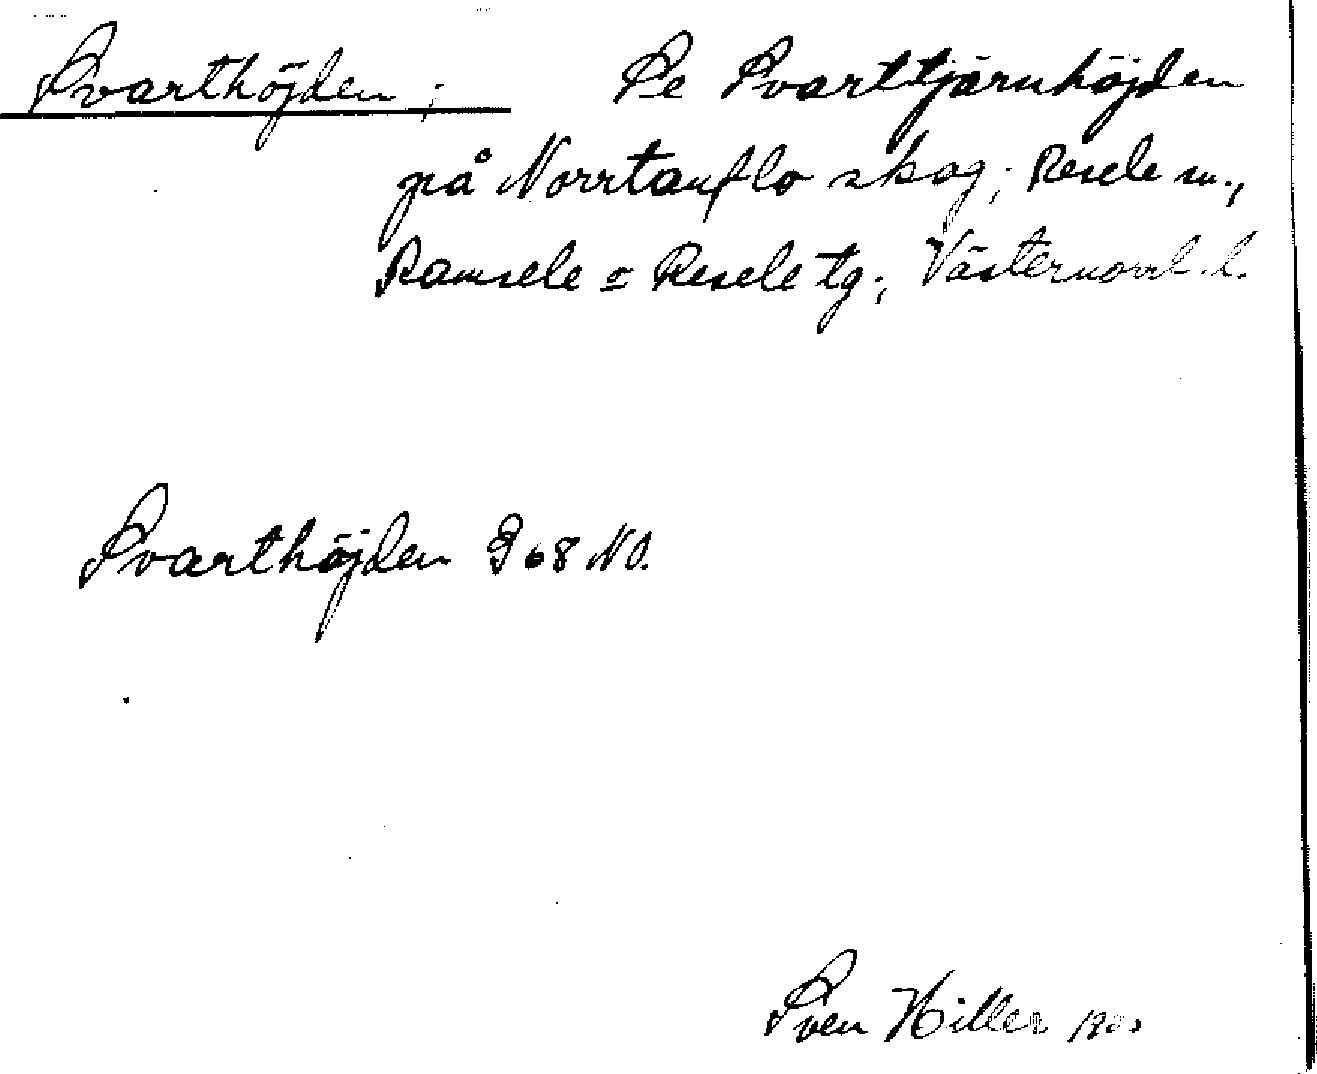 Svarthöjden; Se Svarttjärnhöjden
på Norrtanflo skog; Resele sn.,
Ramsele o Resele tg.; Västernorrl. l.
Svarthöjden G 68 NO.
Sven Hiller